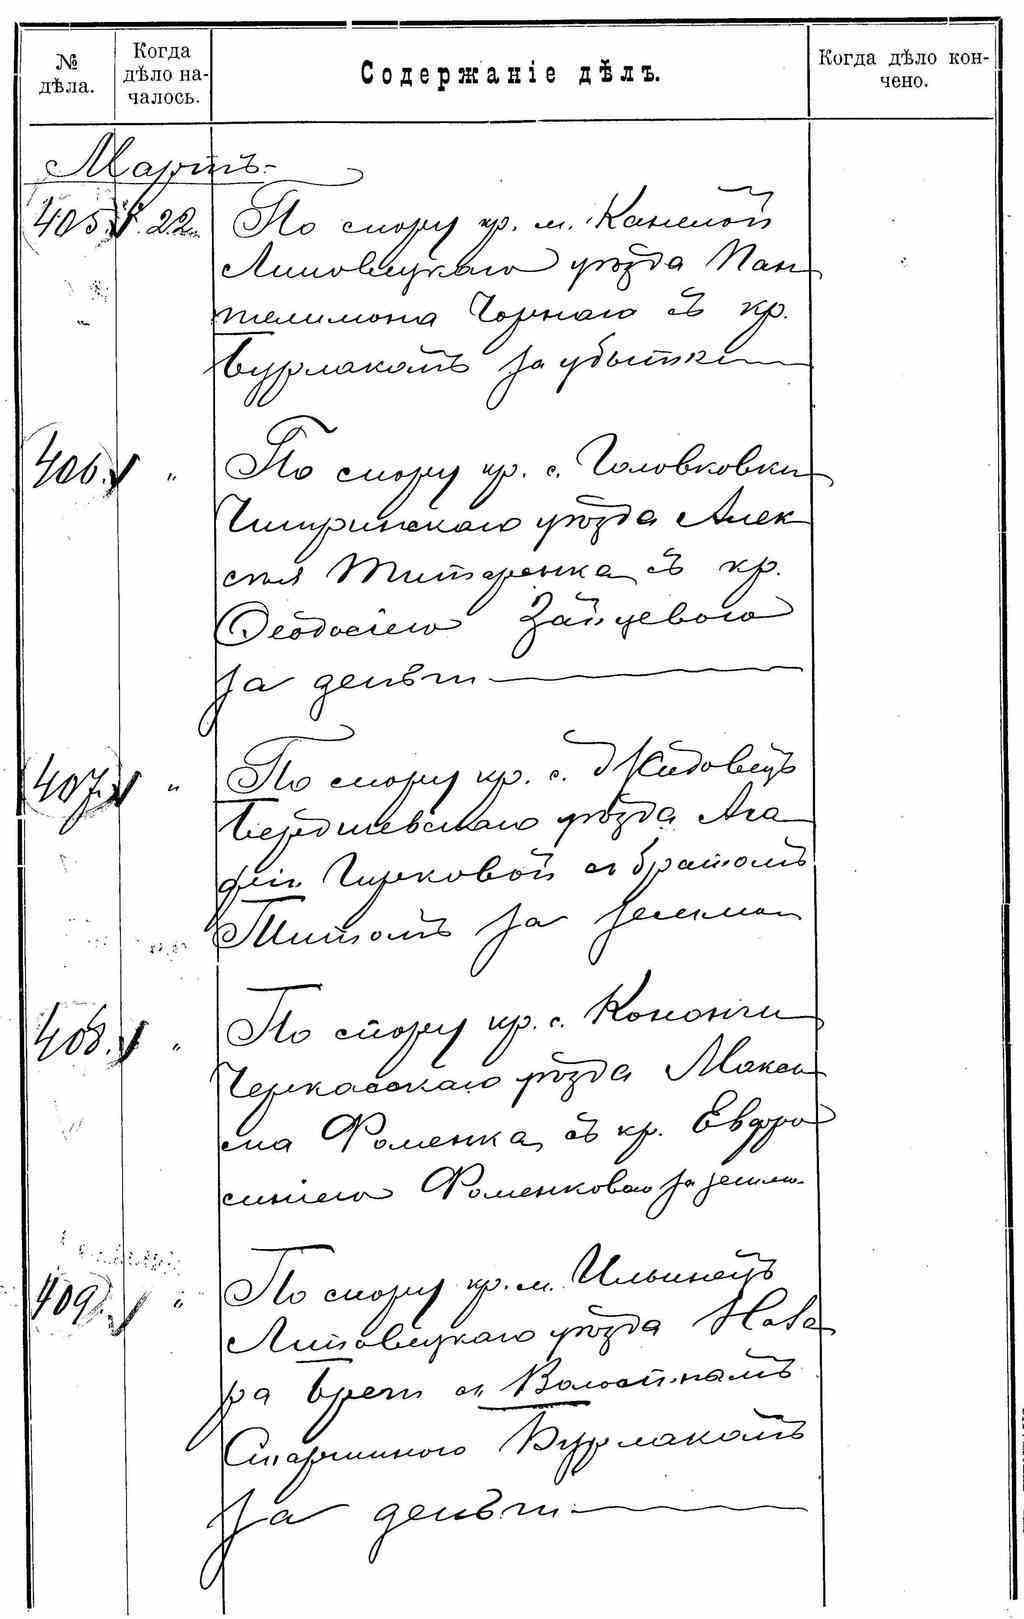 № дѣла.
Когда дѣло на-
чалось.
Содержаніе дѣлъ.
Когда дѣло кон-
чено.
Мартъ.
405. 22.
По спору кр. м. Канелой
Липовецкаго уѣзда Пан
телимона Чорнаго съ кр.
Бурлакомъ за убытки
406. "
По спору кр. с. Головковки
Чигиринскаго уѣзда Алек
сѣя Титаренка съ кр.
Ѳеодосіею Зайцевою
за деньги
407. "
По спору кр. с. Жидовецъ
Бердичевскаго уѣзда Ага
фіи съ братомъ
Титомъ за землю
408. "
По спору кр. с. Конончи
Черкасскаго уѣзда Макси
ма Фоменка съ кр. Евфро
синіею Фоменковою за землю
409. "
По спору кр. м. Ильинецъ
Липовецкаго уѣзда
съ Волостнымъ
Старшиною Бурлакомъ
за деньги